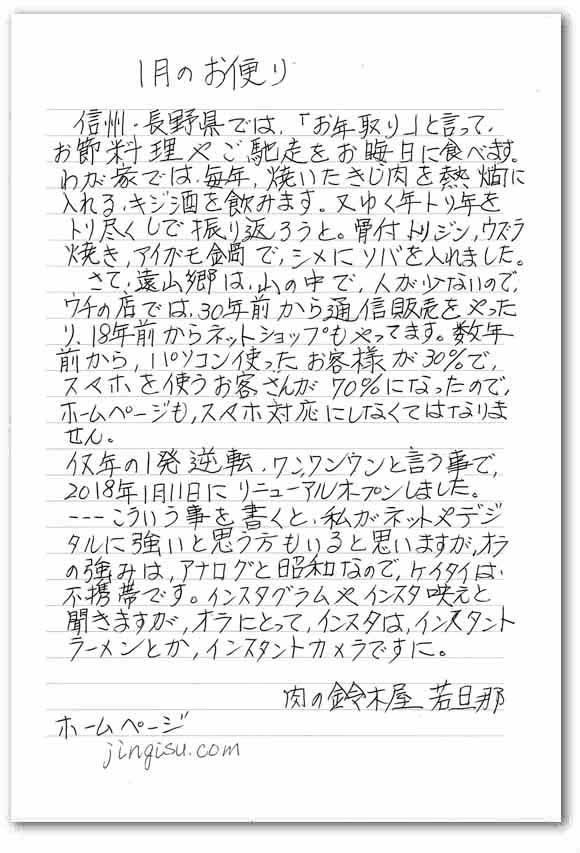 1月のお便り
信州・長野県では、「お年取り」と言って、
お節料理やご馳走をお晦日に食べます。
わが家では、毎年、焼いたきじ肉を熱燗に
入れる、キジ酒を飲みます。又ゆく年トリ年を
トリ尽くしで振り返ろうと。骨付トリジン,ウズラ
焼き,アイガモ金岡で,シメにソバを入れました。
さて、遠山郷は、山の中で,人が少ないので,
ウチの店では、30年前から通信販売をやった
り、18年前からネットショップもやってます。数年
前から,パソコン使ったお客様が30%で,
スマホを使うお客さんが70%になったので,
ホームページも,スマホ対応にしなくてはなりま
せん。
年の1発逆転、ワンワンウンと言う事で,
2018年1月11日にリニューアルオープンしました。
---こういう事を書くと、私がネットやデジ
タルに強いと思う方もいると思いますが,オラ
の強みは,アナログと昭和なので,ケイタイは、
不携帯です。インスタグラムやインスタ映えと
聞きますが,オラにとって,インスタは,インスタント
ラーメンとか,インスタントカメラですに。
肉の鈴木屋 若旦那
ホームページ
jingisu.com